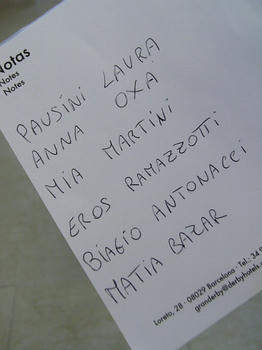 Notas
Notes
Notes
PAUSINI LAURA
ANNA OXA
MIA MARTINI
EROS RAMAZZOTTI
BIAGIO ANTONACCI
MATIA BAZAR
Loreto, 28 - 08029 Barcelona - Tel.: 34
granderby@derbyhotels.